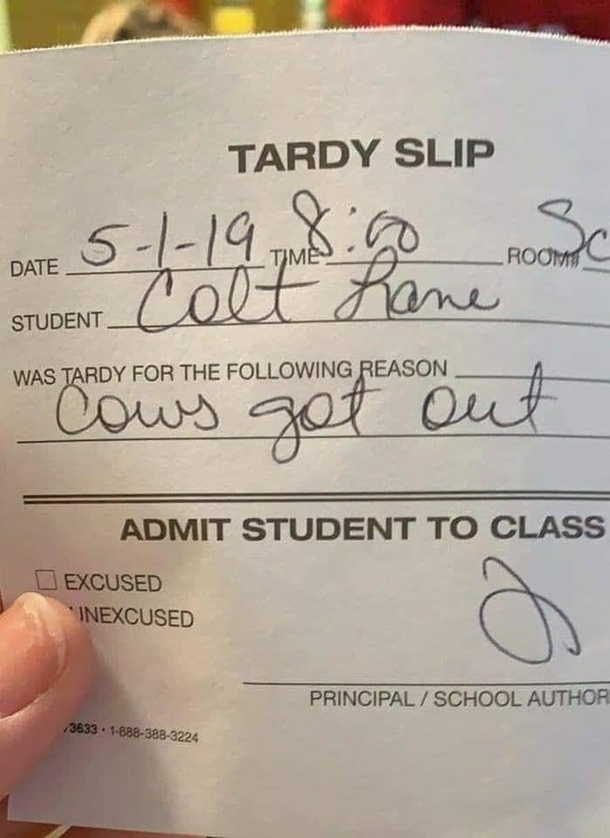 TARDY SLIP
DATE 5-1-19 TIME 8:00 ROOM# Sc
STUDENT Colt Lane
WAS TARDY FOR THE FOLLOWING REASON
Cows got out
ADMIT STUDENT TO CLASS
EXCUSED
UNEXCUSED
PRINCIPAL / SCHOOL AUTHOR
73633 • 1-888-388-3224